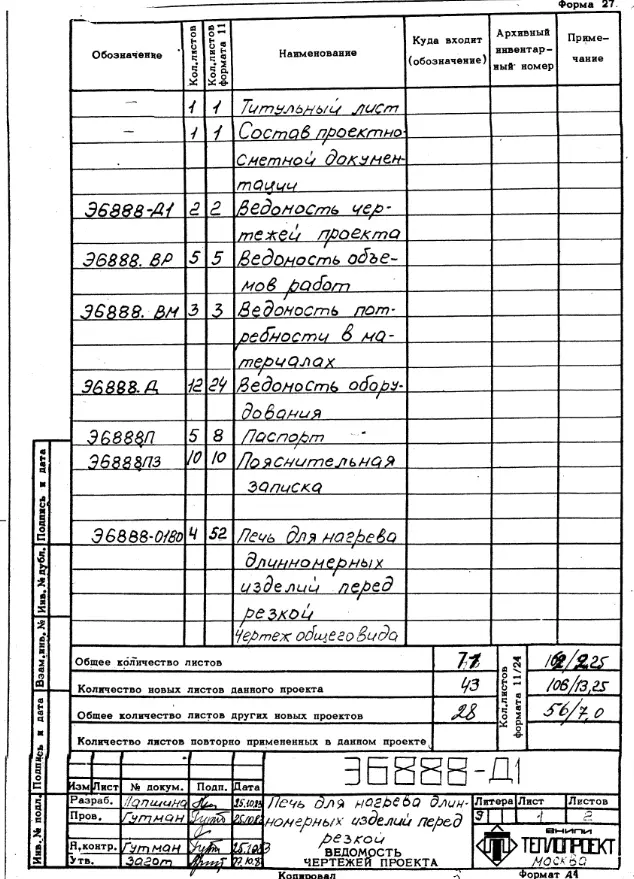 Форма 27.
Обозначение Кол.листов Кол.листов формата 11 Наименование Куда входит (обозначение) Архивный инвентарный номер Примечание
— 1 1 Титульный лист
— 1 1 Состав проектно-
сметной докумен-
тации
Э6888-Д1 2 2 Ведомость чер-
тежей проекта
Э6888. ВР 5 5 Ведомость объе-
мов работ
Э6888. ВМ 3 3 Ведомость пот-
ребности в ма-
териалах
Э6888. Д 12 24 Ведомость обору-
дования
Э6888П 5 8 Паспорт
Э6888ПЗ 10 10 Пояснительная
записка
Э6888-0180 4 52 Печь для нагрева
длинномерных
изделий перед
резкой
Чертеж общего вида
Общее количество листов 71
Количество новых листов данного проекта 43 106/13,25
Общее количество листов других новых проектов 28 56/7,0
Количество листов повторно примененных в данном проекте
Кол.листов формата 11/24
Инв. № подл. Подпись и дата Взам.инв. № Инв. № дубл. Подпись и дата
Э6888-Д1
Изм Лист № докум. Подп. Дата
Разраб. Лапшина
Пров. Гутман
Н.контр. Гутман
Утв.
Печь для нагрева длин-
номерных изделий перед
резкой
ВЕДОМОСТЬ
ЧЕРТЕЖЕЙ ПРОЕКТА
Литера Лист Листов
1 2
ВНИПИ
ТЕПЛОПРОЕКТ
МОСКВА
Копировал Формат А4